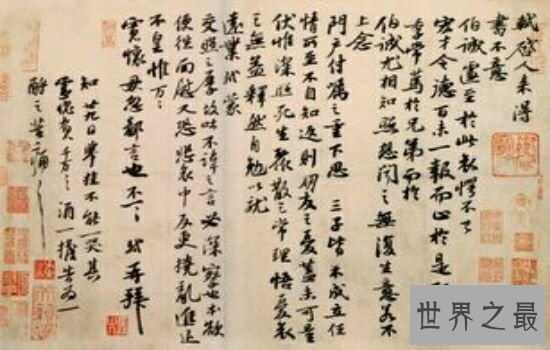 軾啓人来得
書不意
伯誠遽至於此哀愕不已
宏才令德百未一報而止於是耶
季常篤於兄弟而於
伯誠尤相知照想聞之無復生意若不
上念
門户付囑之重下思三子皆不成立任
情所至不自知返則朋友之憂蓋未可量
伏惟深照死生聚散之常理悟憂哀
之無益釋然自勉以就
遠業軾蒙
交照之厚故吐不諱之言必深察也本欲
便往面慰又恐悲哀中反更撓亂進退
不皇惟万万
寬懷毋忽鄙言也不一一軾再拜
知廿九日舉挂不能一哭其
靈愧負千万千万酒一擔告為一
酹之苦痛苦痛
世界之最